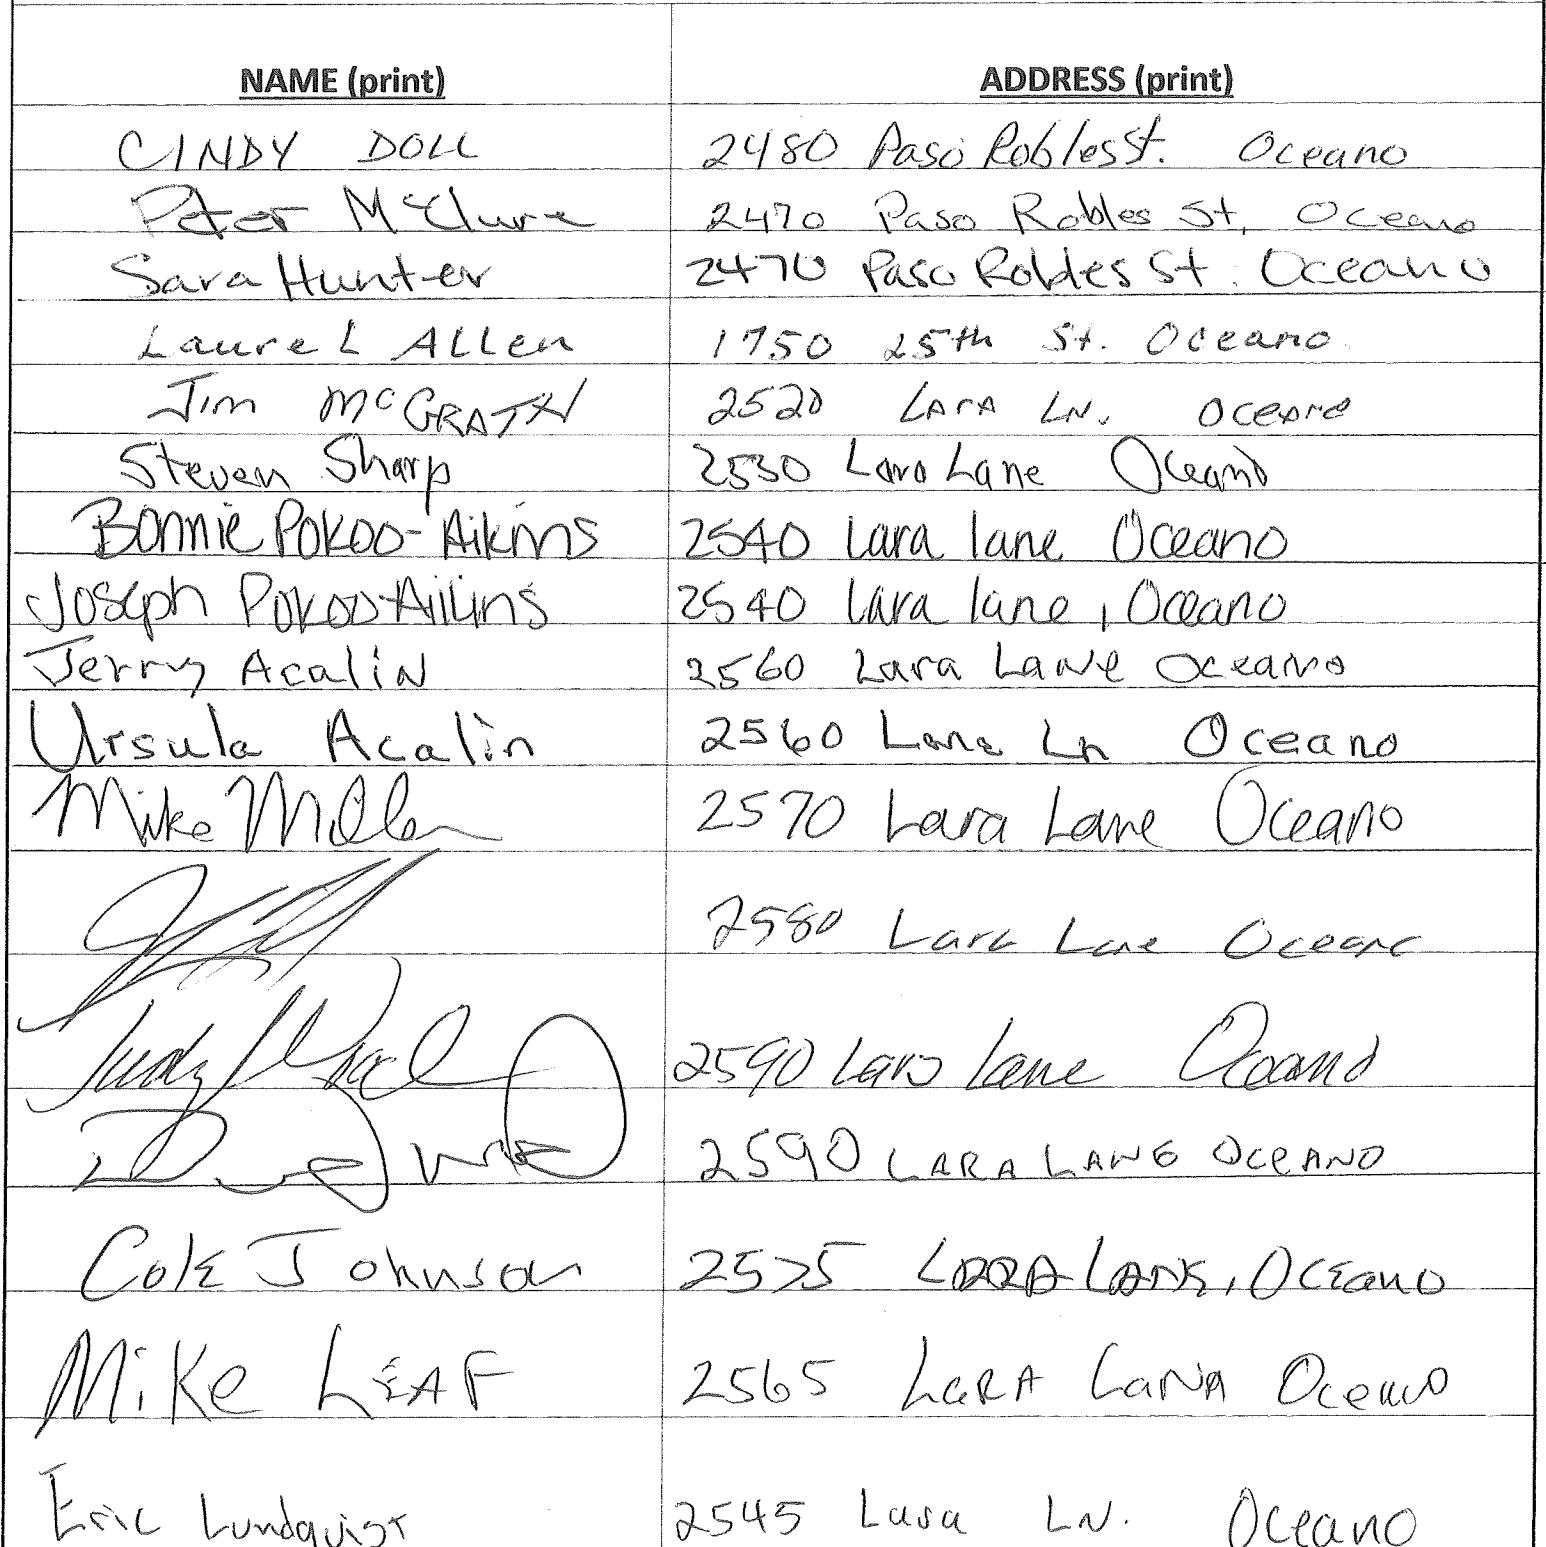 NAME (print) ADDRESS (print)
CINDY DOLL 2480 Paso Robles St. Oceano
Peter McClure 2470 Paso Robles St, Oceano
Sara Hunter 2470 Paso Robles St. Oceano
Laurel Allen 1750 25th St. Oceano
Jim McGRATH 2520 LARA LN. OCEANO
Steven Sharp 2530 Lara Lane Oceano
Bonnie Pokoo-Aikins 2540 Lara lane Oceano
Joseph Pokoo-Aikins 2540 lara lane, Oceano
Jerry Acalin 2560 Lara Lane Oceano
Ursula Acalin 2560 Lara Ln Oceano
Mike Miller 2570 Lara Lane Oceano
2580 Lara Lane Oceano
Judy 2590 Lara lane Oceano
2590 LARA LANE OCEANO
Cole Johnson 2575 LARA LANE, Oceano
Mike LEAF 2565 LaRA LaNA Oceano
Eric Lundquist 2545 Lara LN. Oceano